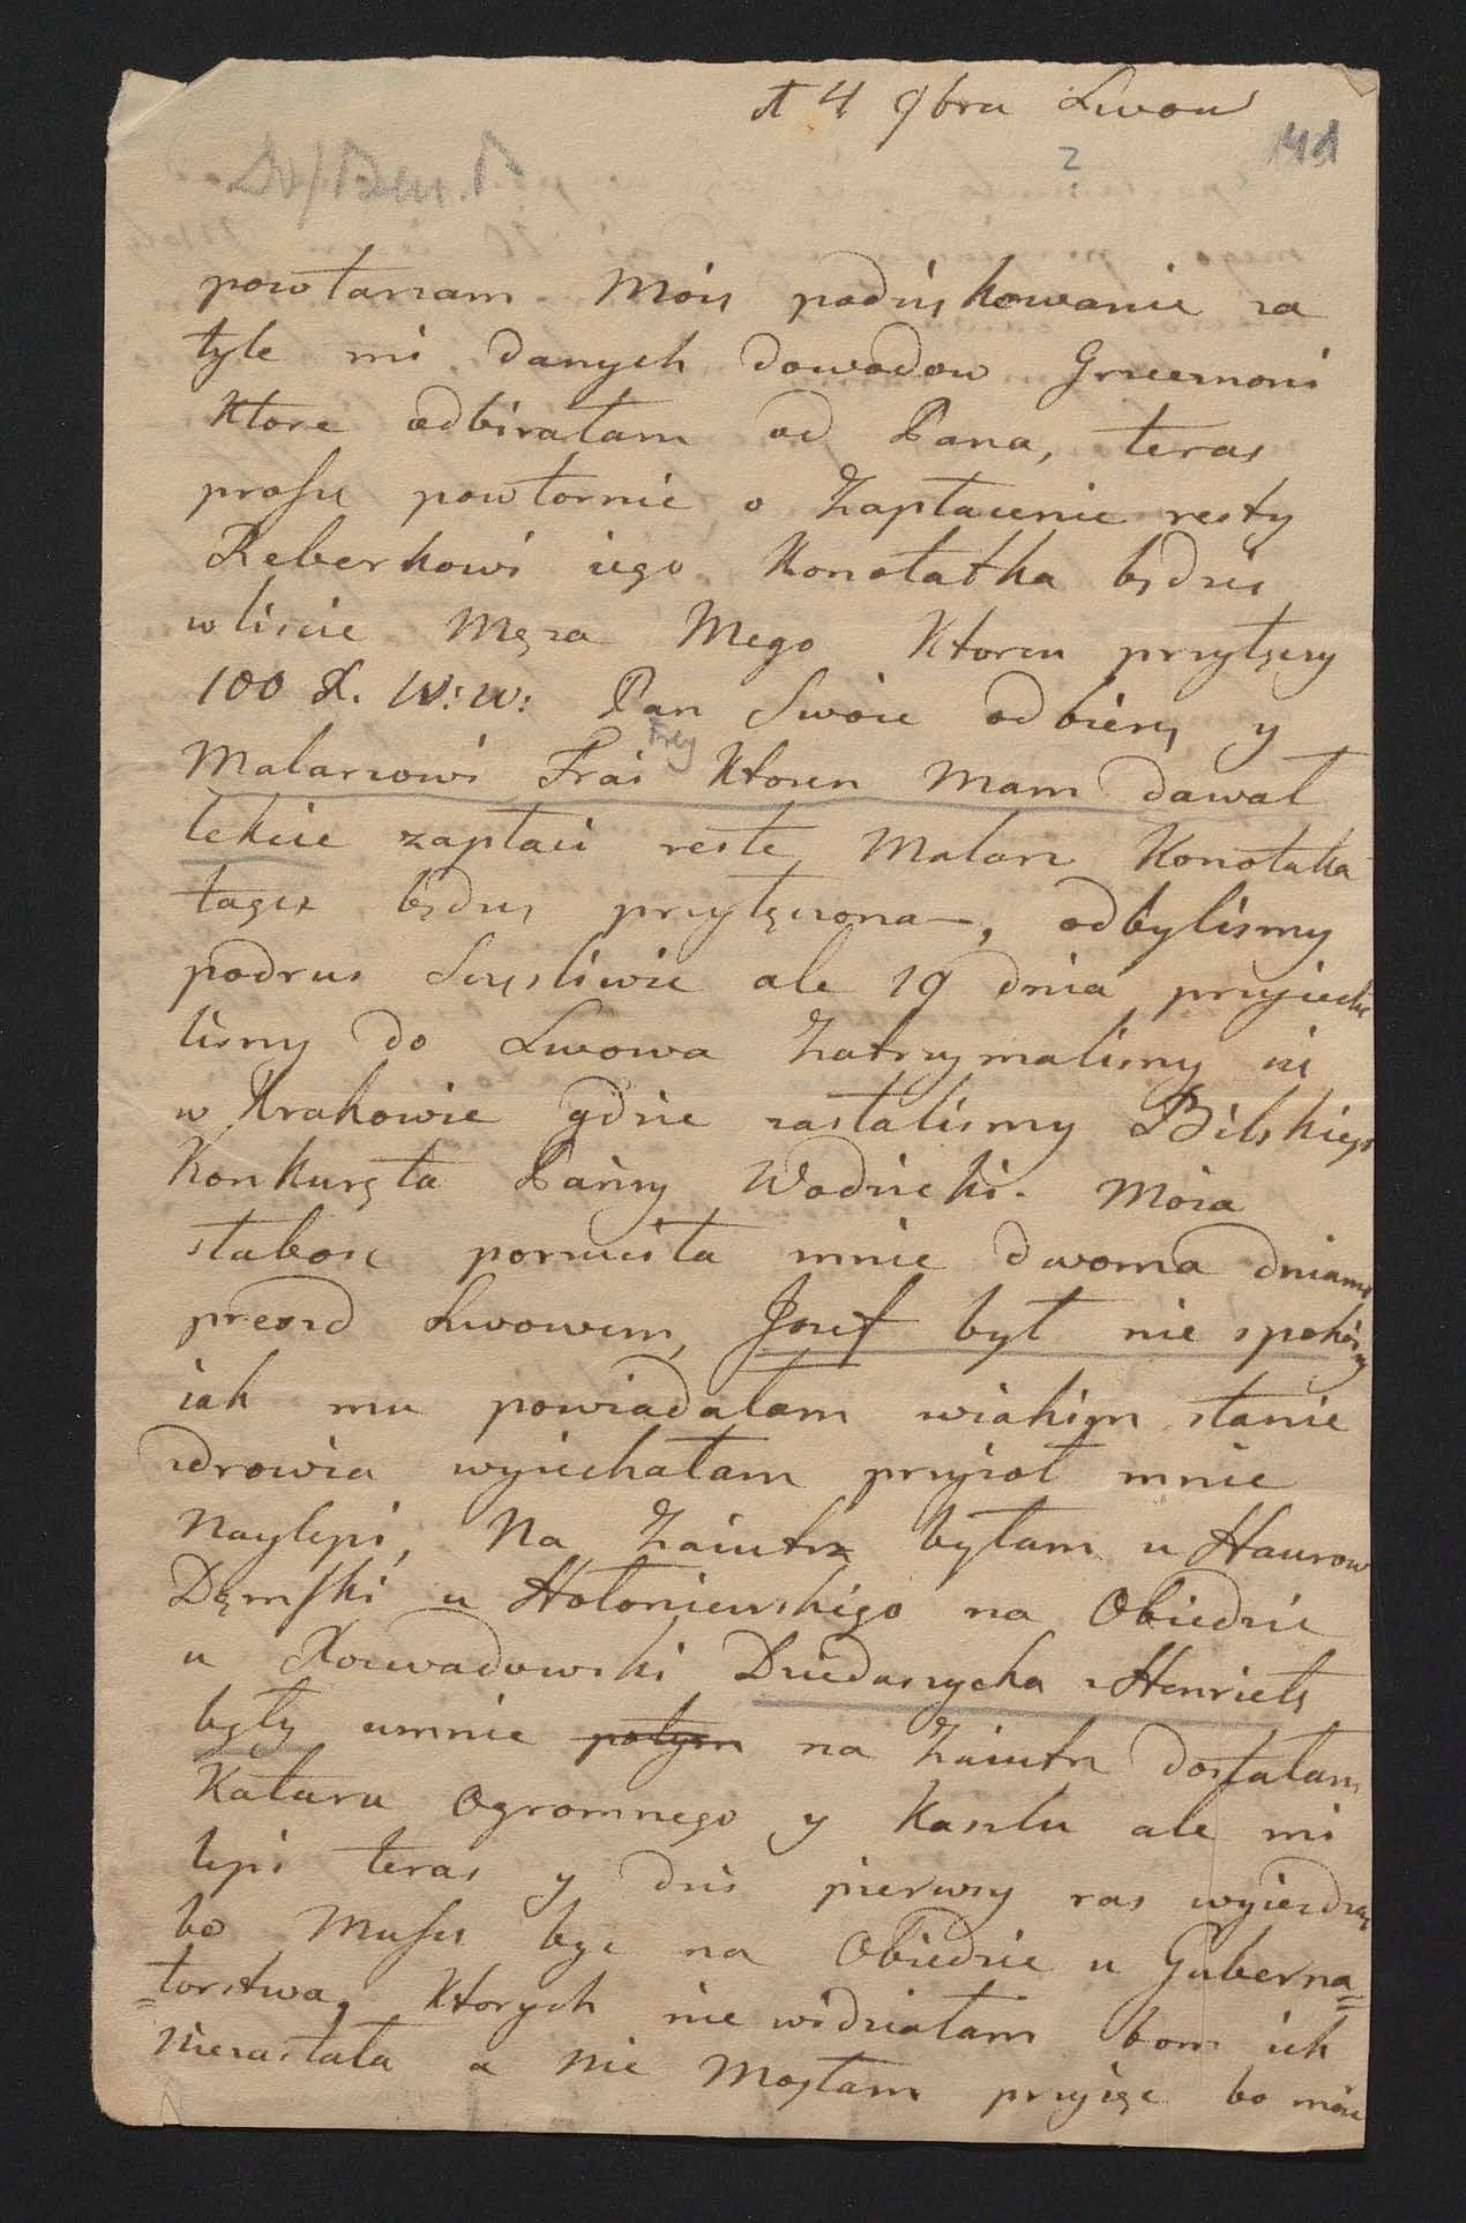 4 9bra Lwow
141
?
powtarzam Moie podziękowanie za
tyle mi danych dowodow Grzecznoni
Ktore odbirałam od Pana, teras
proszę powtornie o Zapłacenie resty
Reberkowi iego Konotatka będzie
w liscie Męza Mego Ktoren przyłęczy
100 W: W: Pan Swoie odbierę y
Frey
Malarzowi Frai Ktoren Mam dawał
lekcie zapłaci reste, Malarz Konotatka
tagze będzie przyłęczona, odbylismy
podrus Sczęsliwie ale 19 dnia przyiecha
lismy do Lwowa Zatrzymalismy sie
w Krakowie gdzie zastalismy Bilskiego
Konkuręta Panny Wodzicki. Moia
słabosc porzuciła mnie dwoma dniami
przed Lwowem, Jozef był nie spokoiny
iak mu powiadałam wiakim stanie
zdrowia wyiechałam przyioł mnie
Naylepi, Na Zaiutrz byłam u Haurow
Dęmski u Hołoniewskigo na Obiedzie
u Dzieduszycka z Henrietę
były umnie potym na Zaiutrz dostałam
Kataru Ogromnego y Kaszlu ale mi
lepi teras y dzis pierwszy ras wyiezdzam
bo Muszę byc na Obiedzie u Guberna=
=torstwa, Ktorych nie widziałam bom ich
niezastała a nie Mogłam przyięc bo moie